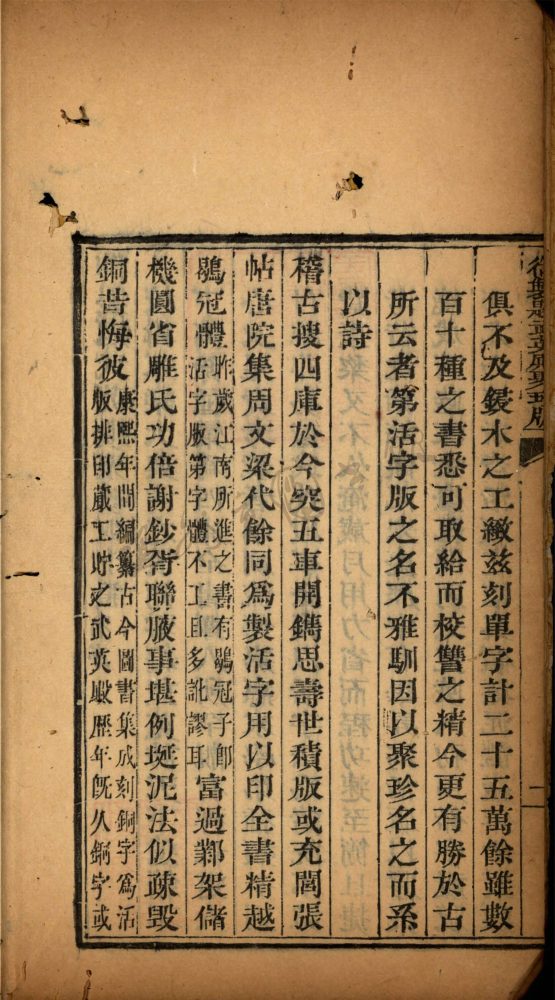 俱不及鋟木之工緻兹刻單字計二十五萬餘雖數
百十種之書悉可取給而校讐之精今更有勝於古
所云者第活字版之名不雅馴因以聚珍名之而系
以詩
稽古搜四庫於今突五車開鐫思壽世積版或充閭張
帖唐院集周文梁代餘同爲製活字用以印全書精越
鶡冠體
昨歲江南所進之書有鶡冠子即
活字版第字體不工且多訛謬耳
富過鄴架儲
機圓省雕氏功倍謝鈔胥聯腋事堪例埏泥法似疎毀
銅昔悔彼
康熙年間編纂古今圖書集成刻銅字爲活
版排印蕆工貯之武英殿歴年既久銅字或